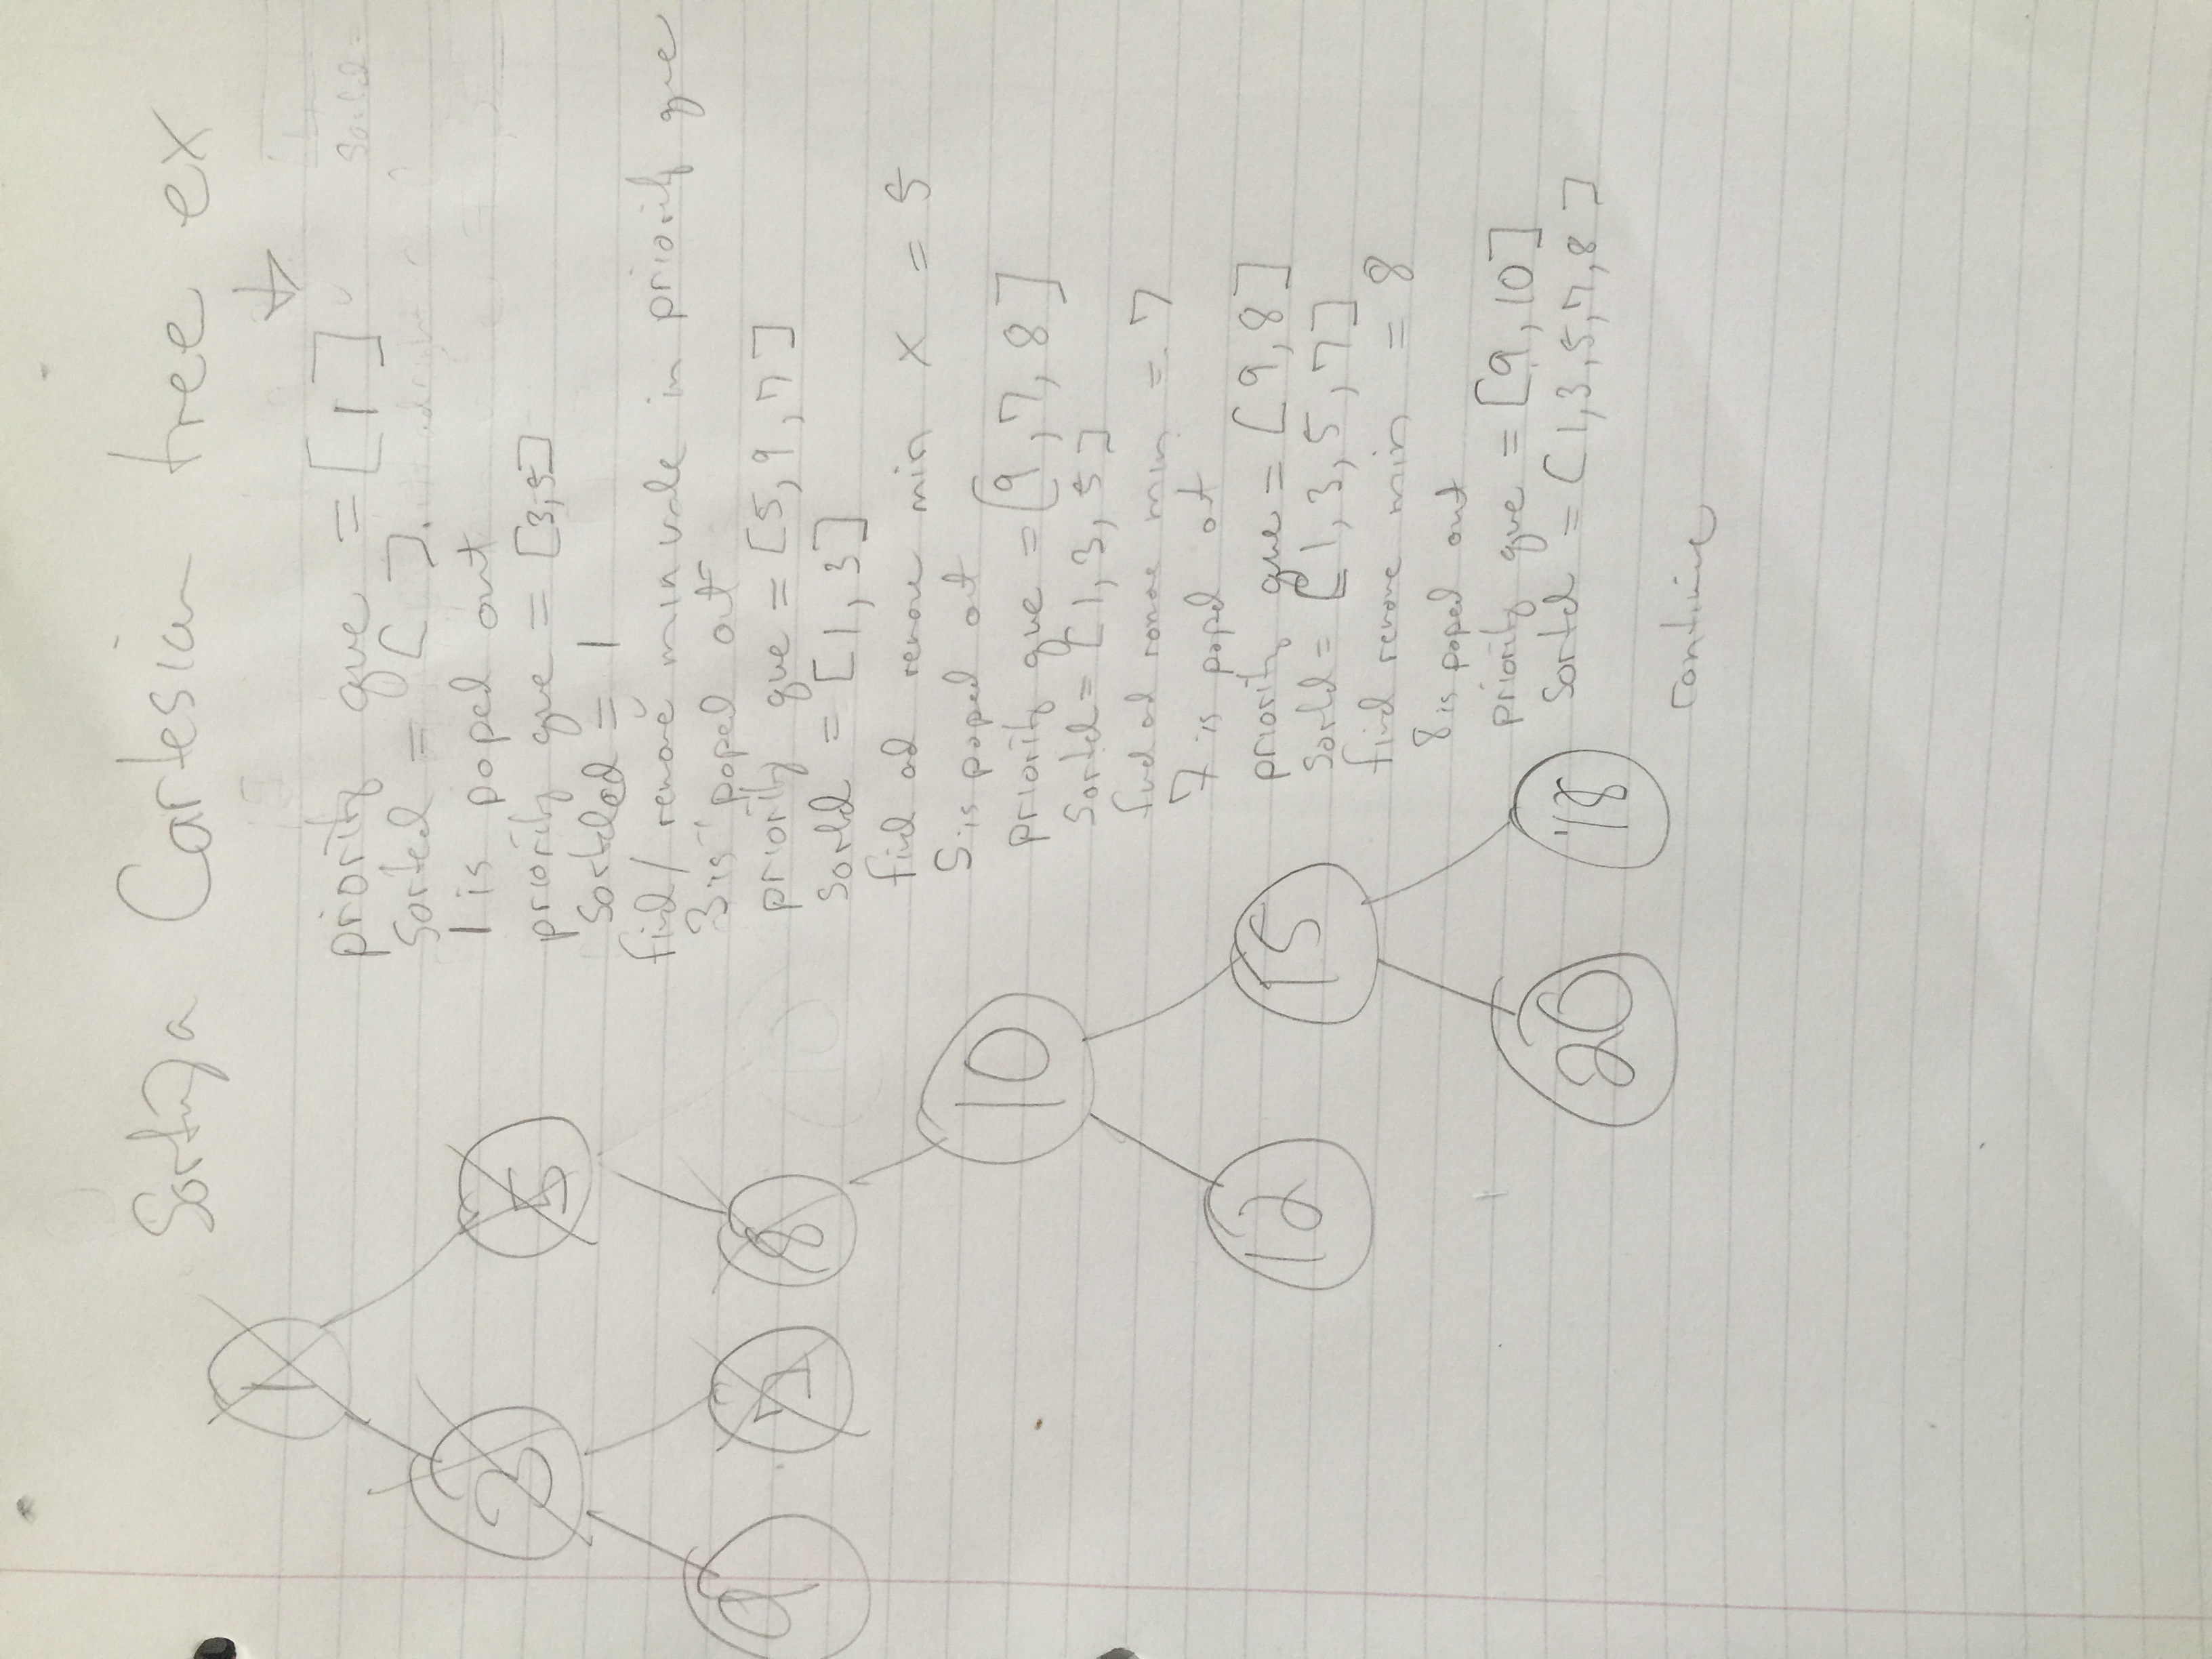 Sorting a Cartesian tree ex
priority que = [1]
Sorted = [ ].
1 is poped out
priority que = [3,5]
Sorted = 1
find/remove min vale in priority que
3 is poped out
priority que = [5,9,7]
Sorted = [1,3]
find ad remove min x = 5
5 is poped out
priority que = [9,7,8]
Sorted = [1,3,5]
find ad remove min = 7
7 is poped ot
priority que = [9,8]
Sorted = [1,3,5,7]
find remove min = 8
8 is poped out
priority que = [9,10]
Sorted = [1,3,5,7,8]
continue
1
3 5
9 7 8
10
12 15
20 18